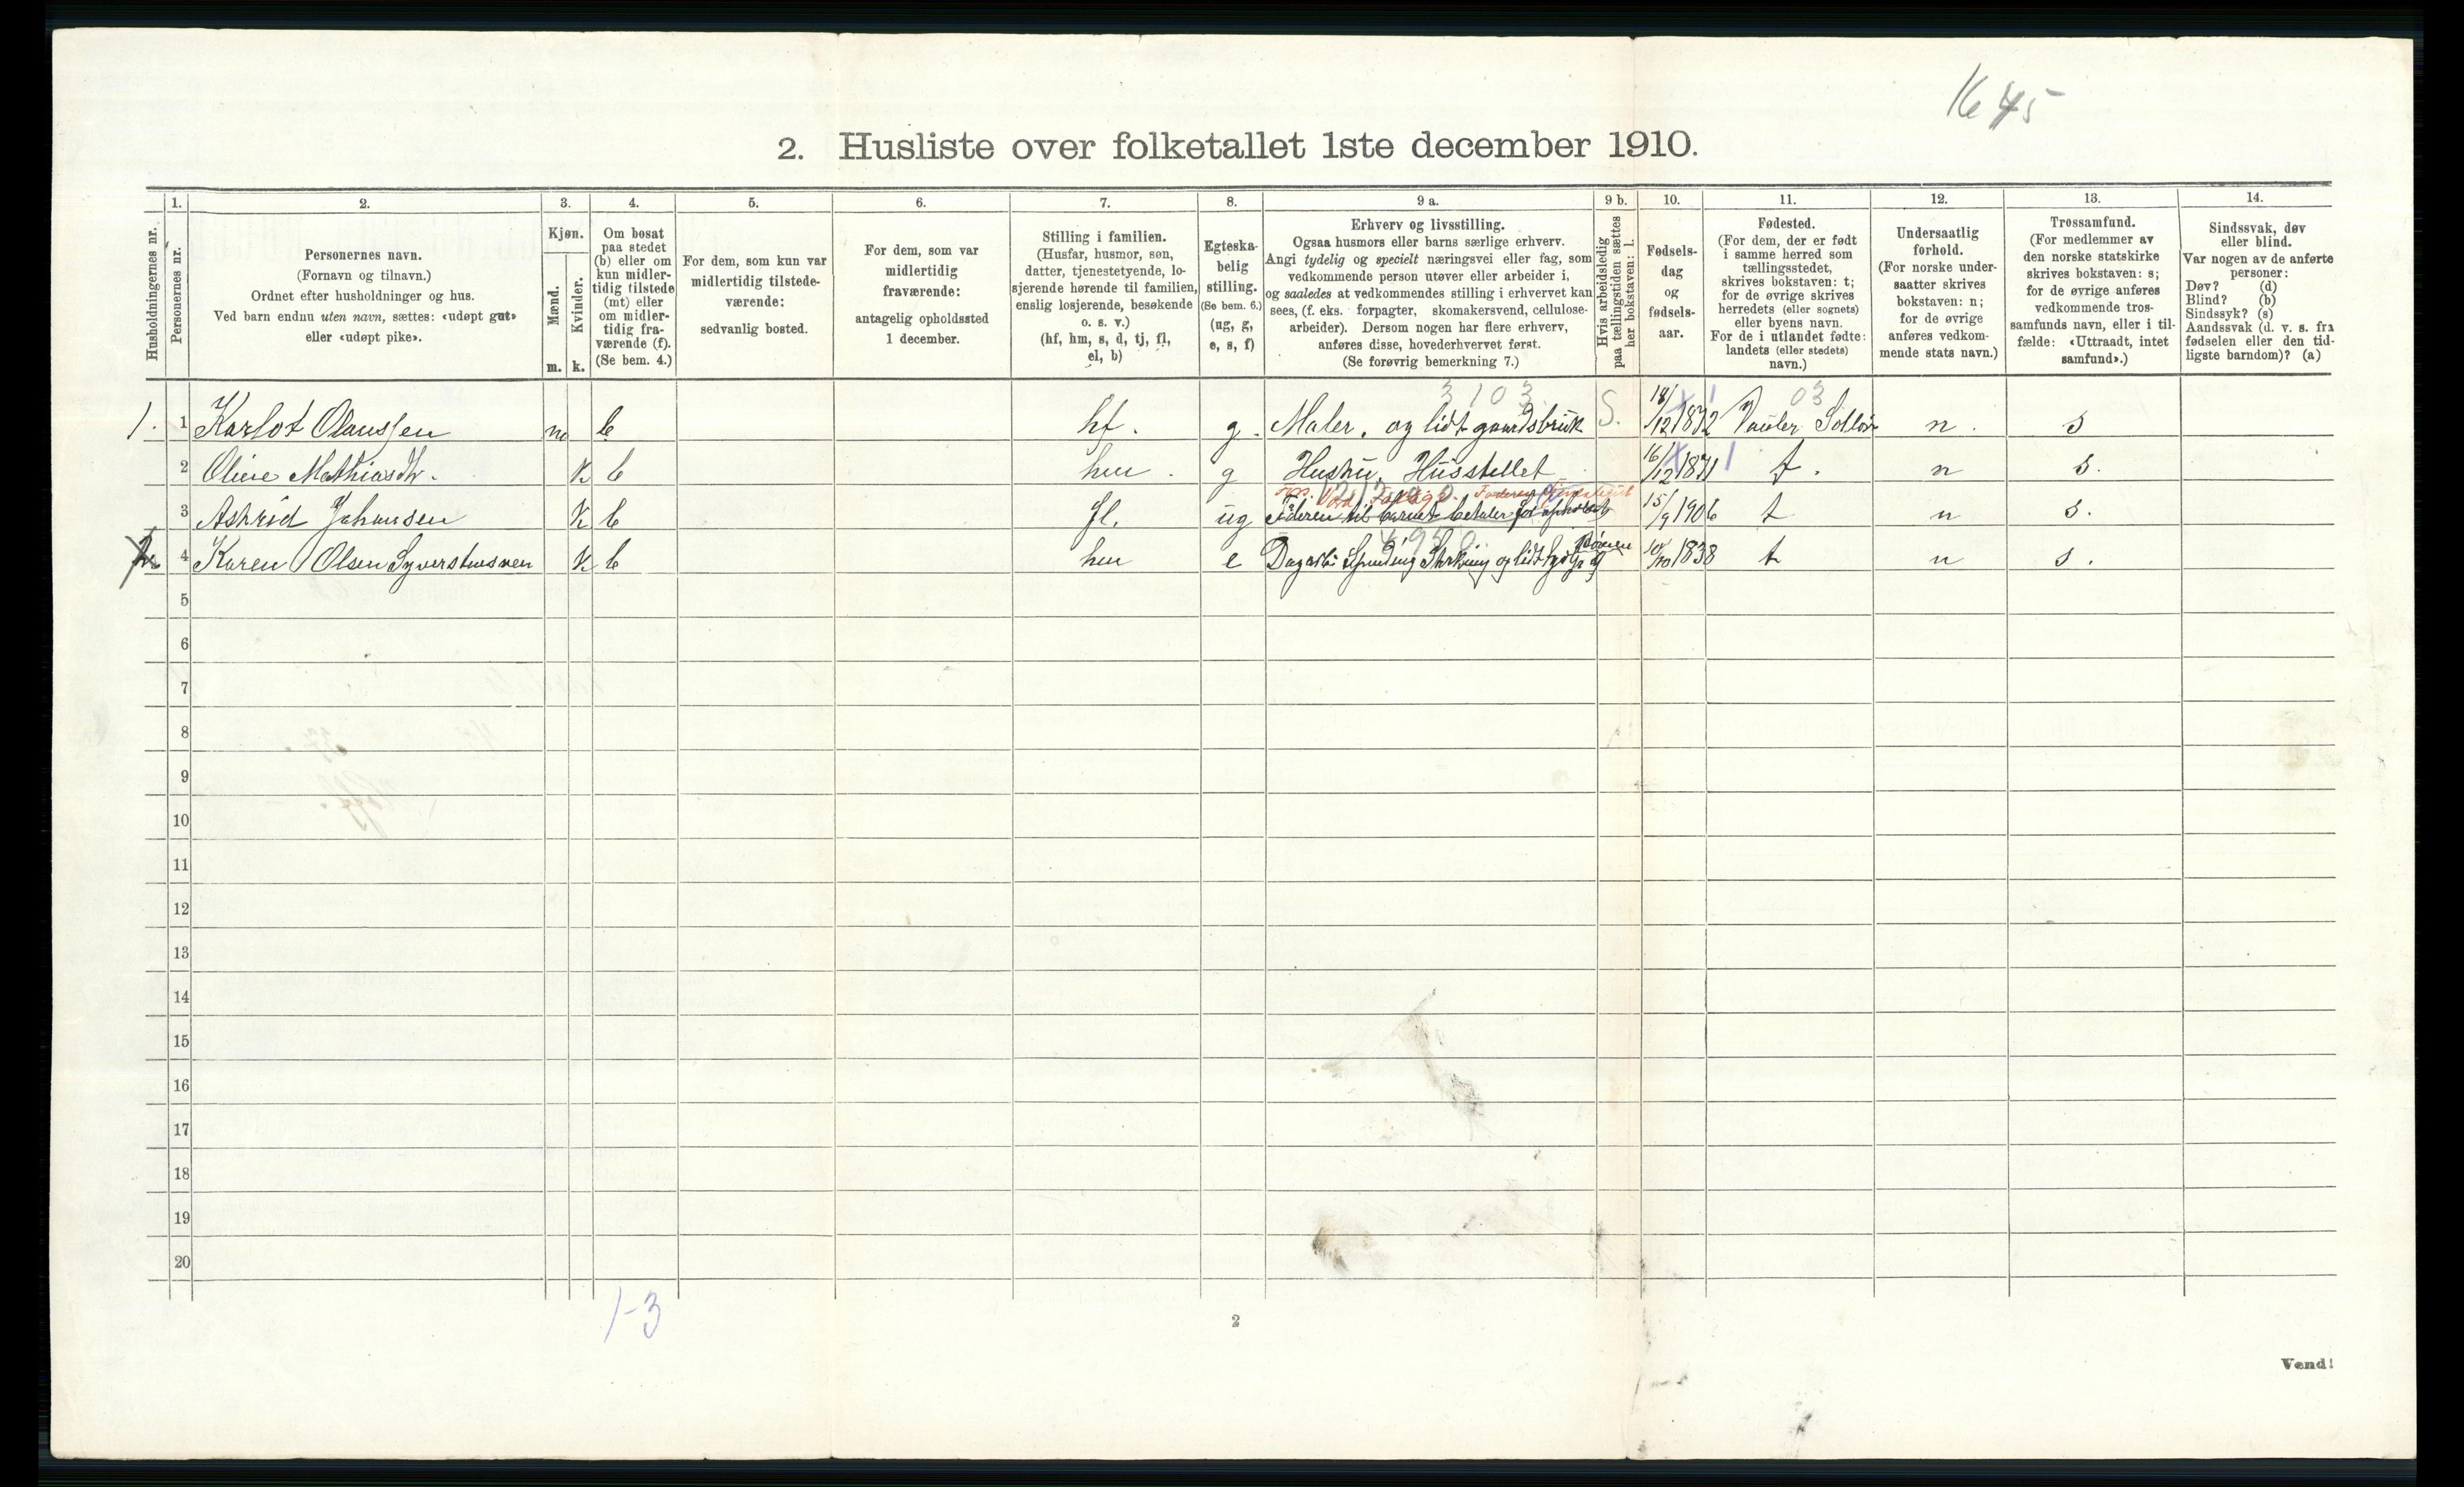 1645
2. Husliste over folketallet 1ste december 1910.
Husholdningernes nr.
1. Personernes nr.
2. Personernes navn.
(Fornavn og tilnavn.)
Ordnet efter husholdninger og hus.
Ved barn endnu uten navn, sættes: «udøpt gut»
eller «udøpt pike».
3. Kjøn.
Mænd. m.
Kvinder. k.
4. Om bosat
paa stedet
(b) eller om
kun midler-
tidig tilstede
(mt) eller
om midler-
tidig fra-
værende (f).
(Se bem. 4.)
5. For dem, som kun var
midlertidig tilstede-
værende:
sedvanlig bosted.
6. For dem, som var
midlertidig
fraværende:
antagelig opholdssted
1 december.
7. Stilling i familien.
(Husfar, husmor, søn,
datter, tjenestetyende, lo-
sjerende hørende til familien,
enslig losjerende, besøkende
o. s. v.)
(hf, hm, s, d, tj, fl,
el, b)
8. Egteska-
belig
stilling.
(Se bem. 6.)
(ug, g,
e, s, f)
9 a. Erhverv og livsstilling.
Ogsaa husmors eller barns særlige erhverv.
Angi tydelig og specielt næringsvei eller fag, som
vedkommende person utøver eller arbeider i,
og saaledes at vedkommendes stilling i erhvervet kan
sees, (f. eks. forpagter, skomakersvend, cellulose-
arbeider). Dersom nogen har flere erhverv,
anføres disse, hovederhvervet først.
(Se forøvrig bemerkning 7.)
9 b. Hvis arbeidsledig
paa tællingstiden sættes
her bokstaven: l.
10. Fødsels-
dag
og
fødsels-
aar.
11. Fødested.
(For dem, der er født
i samme herred som
tællingsstedet,
skrives bokstaven: t;
for de øvrige skrives
herredets (eller sognets)
eller byens navn.
For de i utlandet fødte:
landets (eller stedets)
navn.)
12. Undersaatlig
forhold.
(For norske under-
saatter skrives
bokstaven: n;
for de øvrige
anføres vedkom-
mende stats navn.)
13. Trossamfund.
(For medlemmer av
den norske statskirke
skrives bokstaven: s;
for de øvrige anføres
vedkommende tros-
samfunds navn, eller i til-
fælde: «Uttraadt, intet
samfund».)
14. Sindssvak, døv
eller blind.
Var nogen av de anførte
personer:
Døv? (d)
Blind? (b)
Sindssyk? (s)
Aandssvak (d. v. s. fra
fødselen eller den tid-
ligste barndom)? (a)
3103 03
1. 1 Karlot Olaussen m b hf. g. Maler, og lidt gaardsbruk S. 18/12 1872 Vaaler Solløir n. s
2 Oline Mathiasdtr. k b hm. g Hustru, Husstellet 16/12 1871 t. n s.
3 Astrid Johansen k b fl. ug Faderen til barnet betaler for opholdet 15/9 1906 t n s.
4 Karen Olsen Syverstuesveen k b hm e 10/10 1838 t n s.
5
6
7
8
9
10
11
12
13
14
15
16
17
18
19
20
1-3
2
Vend!